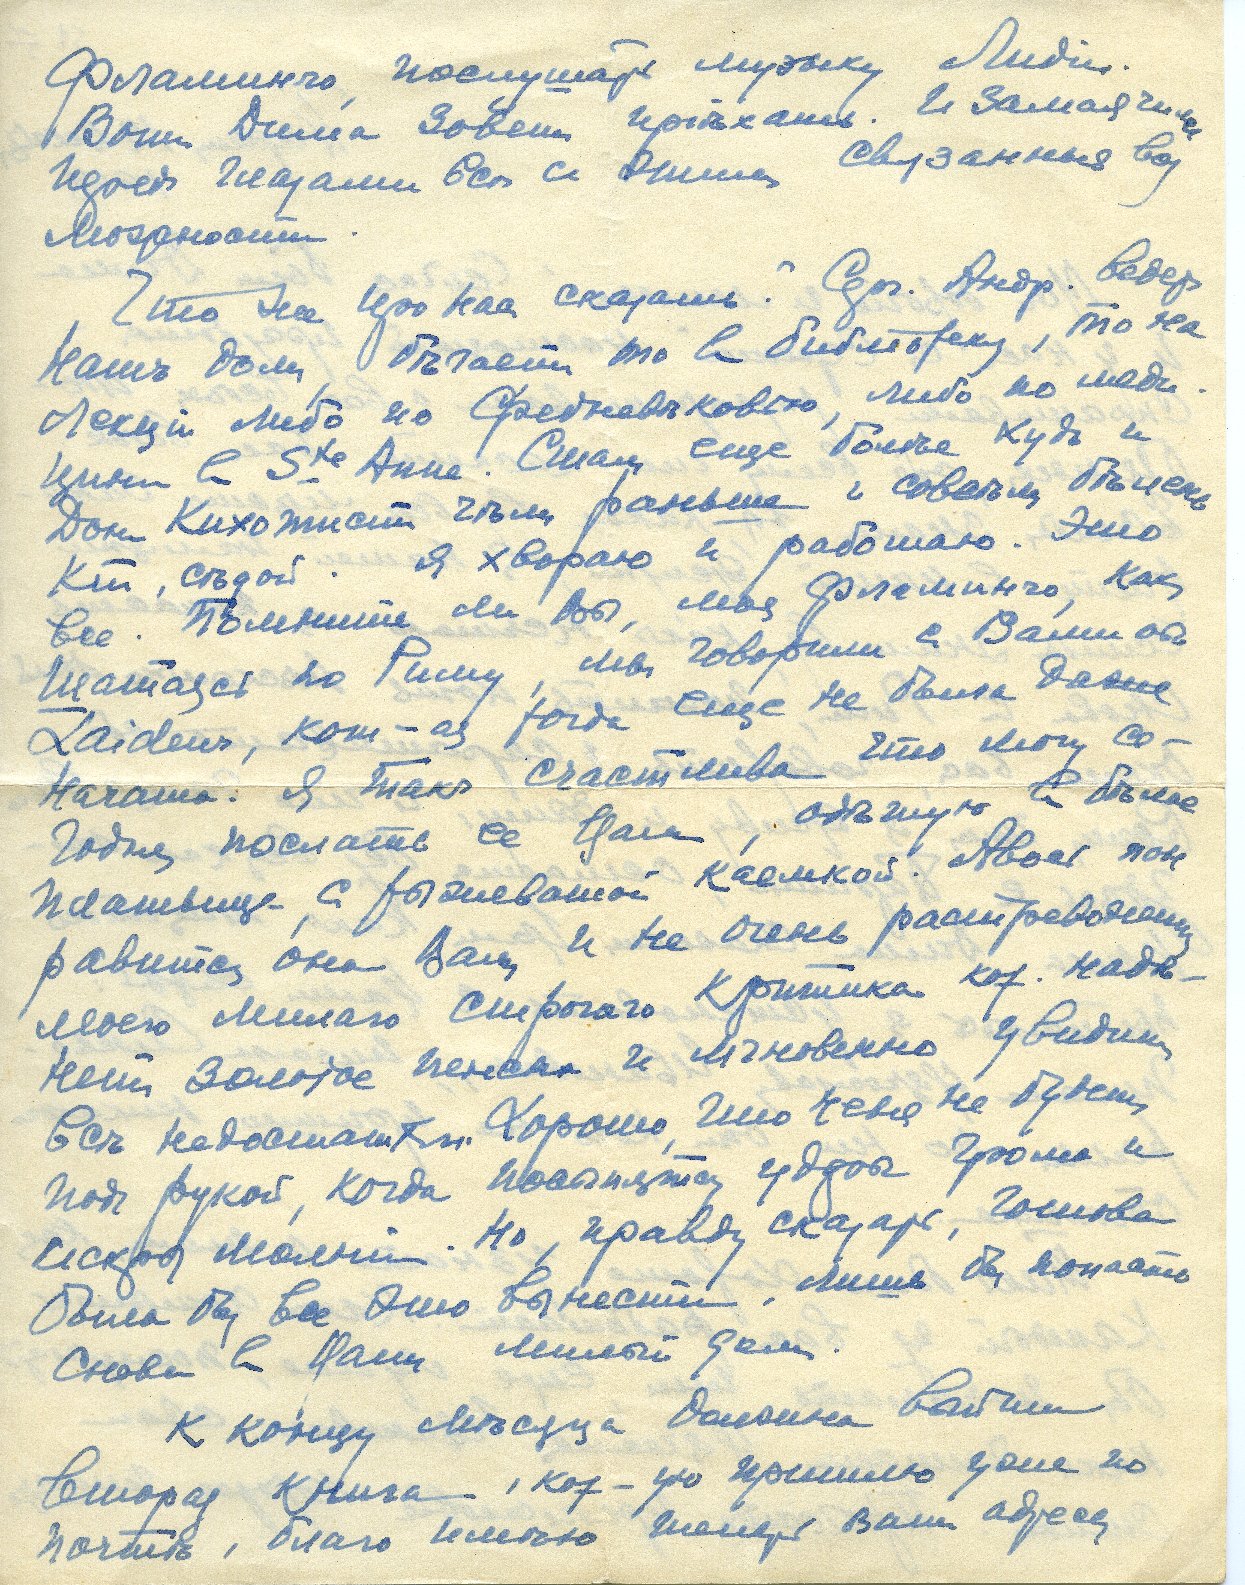 Фламинго, послушать музыку Лидiи.
Вотъ Дима зоветъ прiѣхать. И замаячили
предъ глазами всѣ съ этимъ связанныя воз
можности.
Что же про насъ сказать? Серг. Андр. ведетъ
нашъ домъ, бѣгаетъ то въ библiотеку, то на
лекцiи либо по Средневѣковiю, либо по меди-
цинѣ въ Ste Anne. Сталъ еще болѣе худъ и
Донъ Кихотистъ чѣмъ раньше и совсѣмъ бѣленъ
кiй, сѣдой. Я хвораю и работаю. Это
все. Помните ли Вы, моя Фламинго, какъ
шатаясь по Риму, мы говорили съ Вами объ
Laidens, кот-ая тогда еще не была даже
начата. Я такъ счастлива что могу се-
годня послать ее Вамъ, одѣтую въ бѣлое
платьице съ рыжеватой каемкой. Авось пон
равится она Вамъ и не очень растревожитъ
моего милаго строгаго критика кот. надѣ-
нетъ золотое пенснэ и мгновенно увидитъ
всѣ недостатки. Хорошо, что меня не будетъ
подъ рукой, когда посыпятся удары грома и
искры молнiи. Но, правду сказать, готова
была бы все это вынести, лишь бы попасть
снова въ Вашъ милый домъ.
К концу мѣсяца должна выйти
вторая книга, кот-ую пришлю уже по
почтѣ, благо имѣю теперь вашъ адресъ